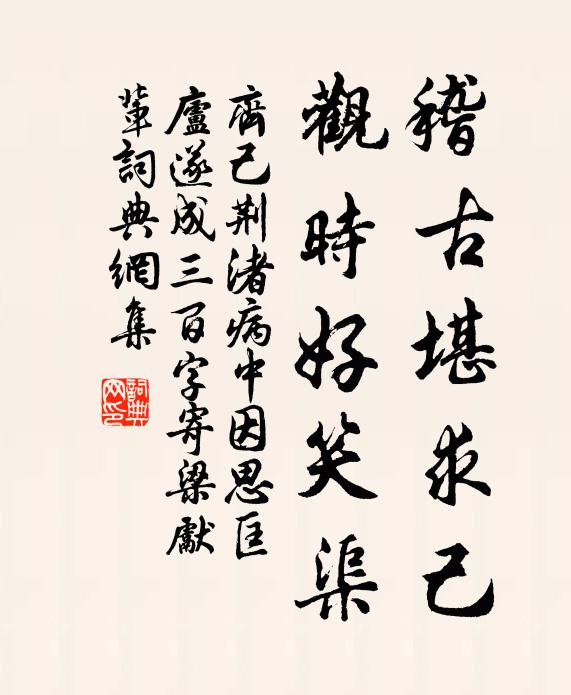 稽古堪求己
觀時好笑渠
齊己荆渚病中因思匡
廬遂成三百字寄梁獻
輩詞典網集
詞典
网印